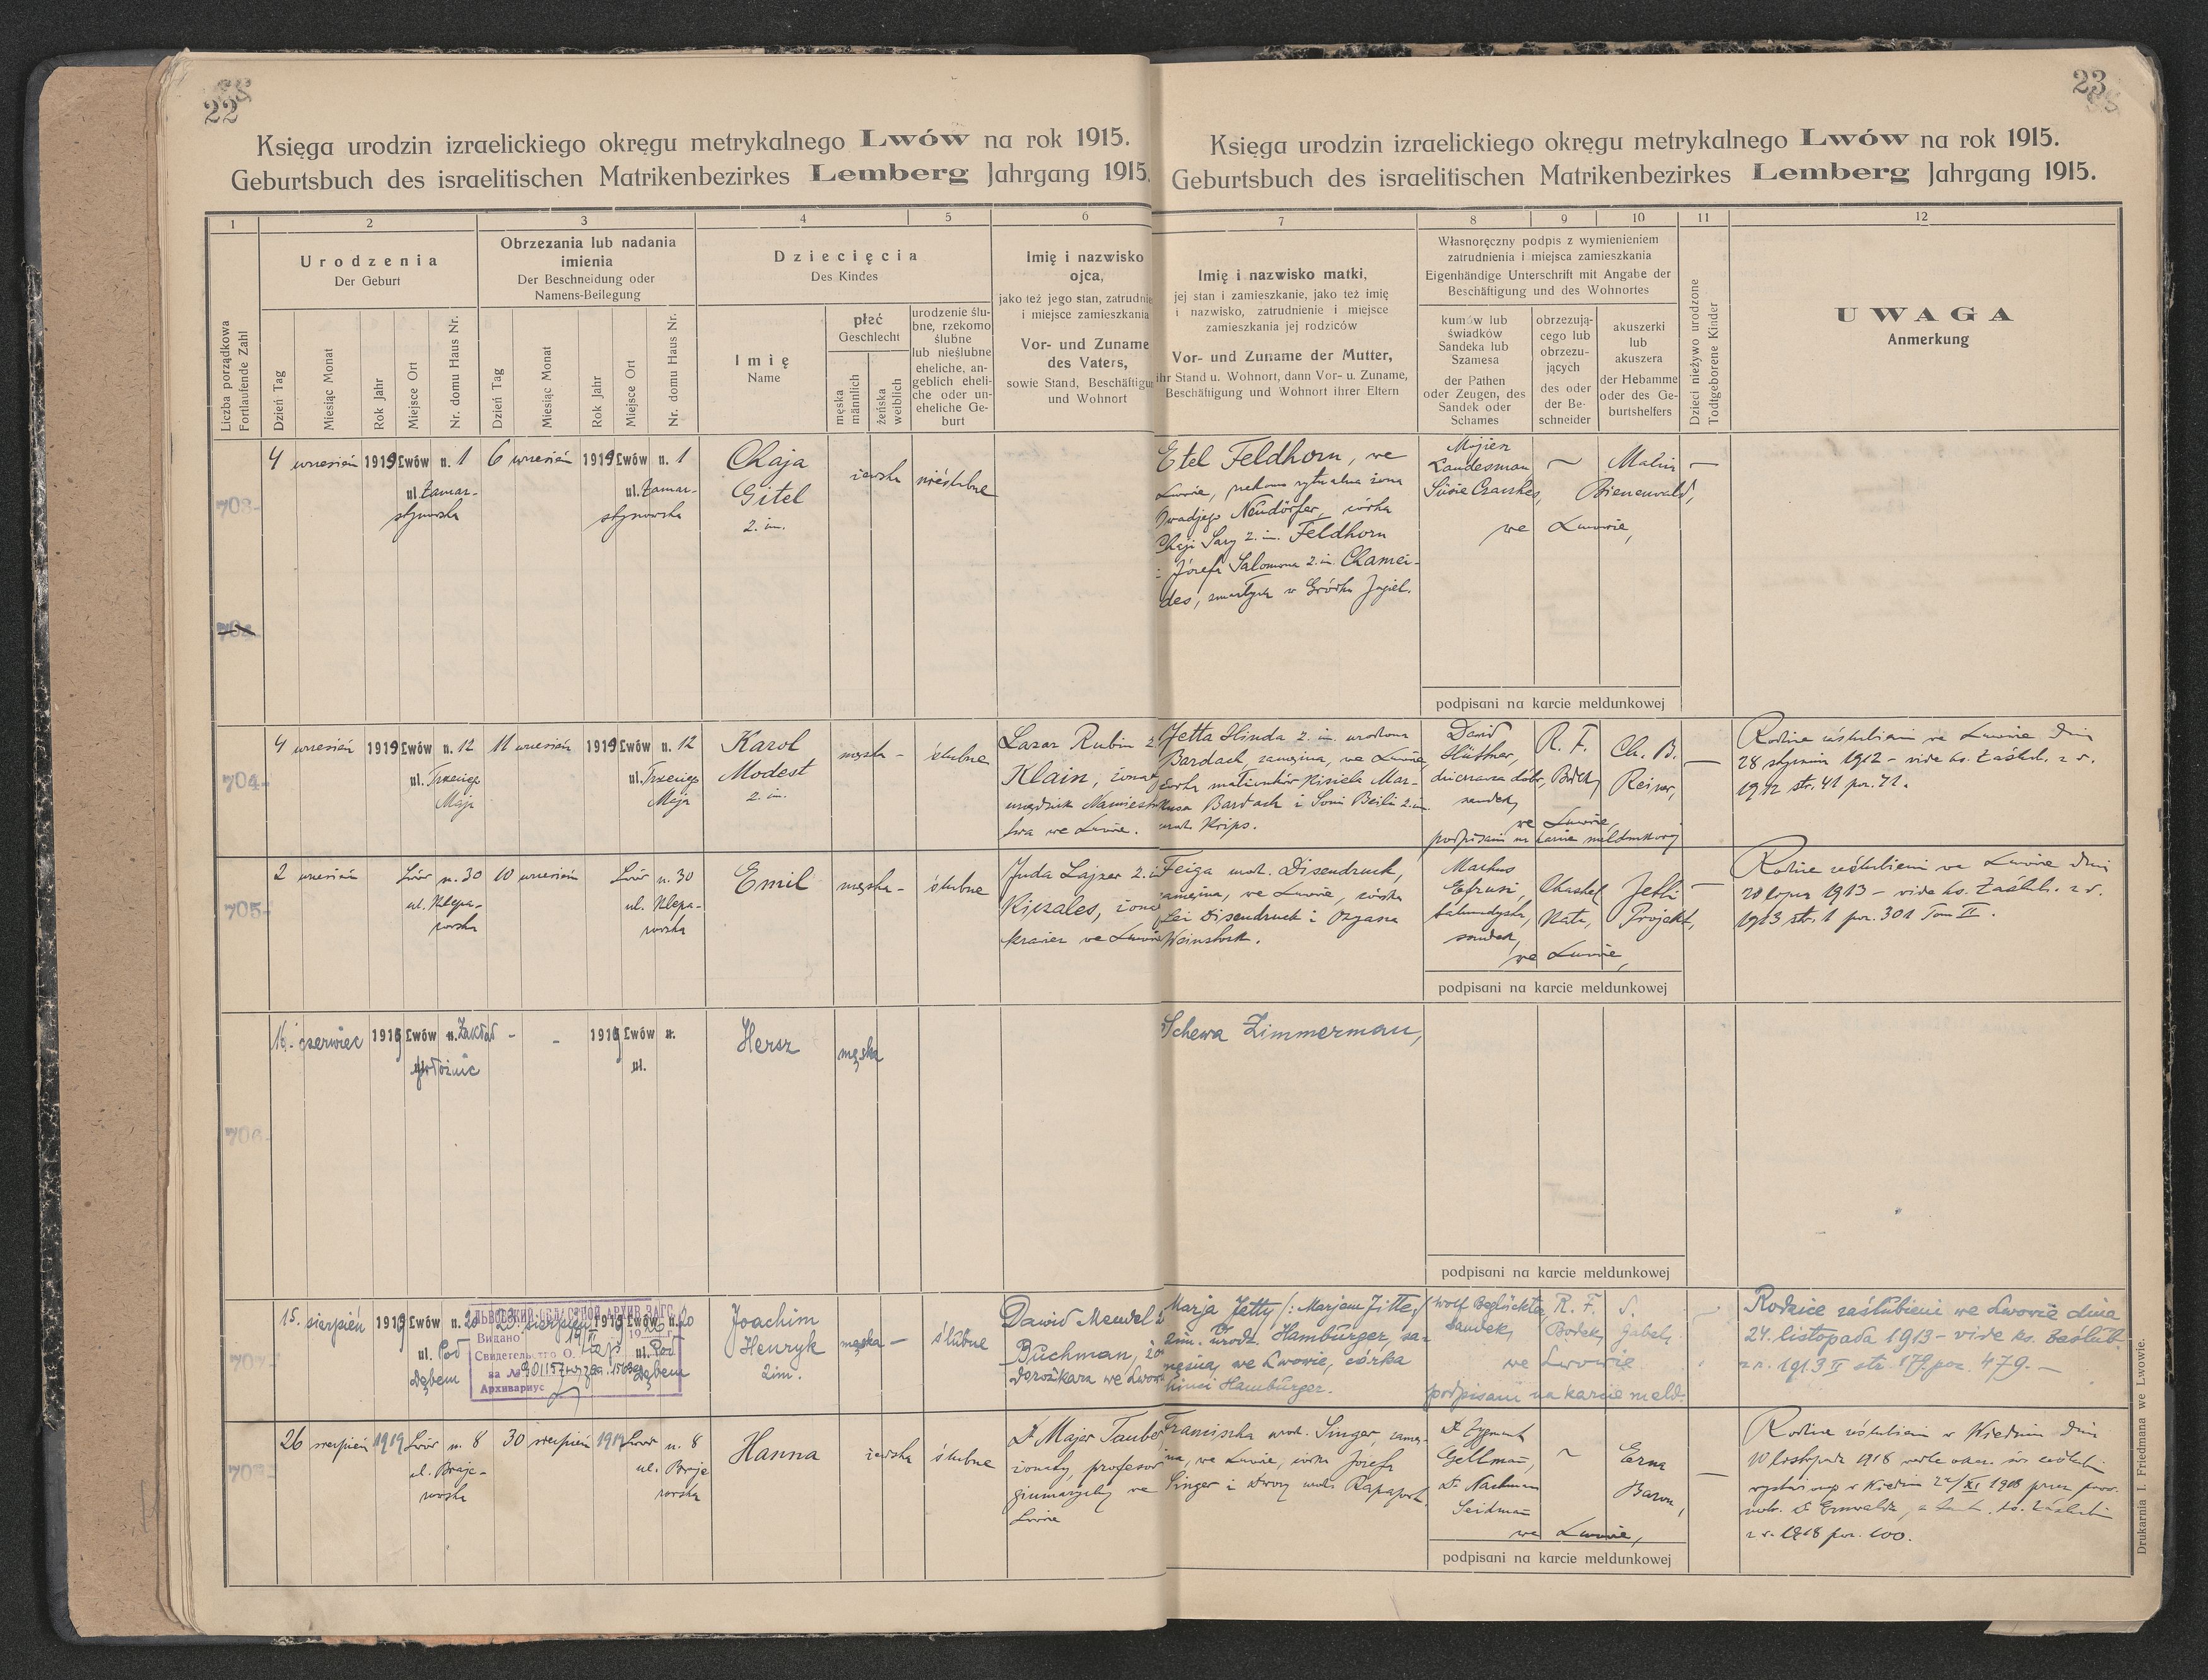 22
23
Księga urodzin izraelickiego okręgu metrykalnego Lwów na rok 1915.
Geburtsbuch des israelitischen Matrikenbezirkes Lemberg Jahrgang 1915.
Księga urodzin izraelickiego okręgu metrykalnego Lwów na rok 1915.
Geburtsbuch des israelitischen Matrikenbezirkes Lemberg Jahrgang 1915.
1 2 3 4 5 6 7 8 9 10 11 12
Liczba porządkowa
Fortlaufende Zahl
Urodzenia
Der Geburt
Dzień Tag
Miesiąc Monat
Rok Jahr
Miejsce Ort
Nr. domu Haus Nr.
Obrzezania lub nadania
imienia
Der Beschneidung oder
Namens-Beilegung
Dzień Tag
Miesiąc Monat
Rok Jahr
Miejsce Ort
Nr. domu Haus Nr.
Dziecięcia
Des Kindes
Imię
Name
płeć
Geschlecht
męska
männlich
żeńska
weiblich
urodzenie ślu-
bne, rzekomo
ślubne
lub nieślubne
eheliche, an-
geblich eheli-
che oder un-
eheliche Ge-
burt
Imię i nazwisko
ojca,
jako też jego stan, zatrudnie
i miejsce zamieszkania
Vor- und Zuname
des Vaters,
sowie Stand, Beschäftigun
und Wohnort
Imię i nazwisko matki,
jej stan i zamieszkanie, jako też imię
i nazwisko, zatrudnienie i miejsce
zamieszkania jej rodziców
Vor- und Zuname der Mutter,
ihr Stand u. Wohnort, dann Vor- u. Zuname,
Beschäftigung und Wohnort ihrer Eltern
Własnoręczny podpis z wymienieniem
zatrudnienia i miejsca zamieszkania
Eigenhändige Unterschrift mit Angabe der
Beschäftigung und des Wohnortes
kumów lub
świadków
Sandeka lub
Szamesa
der Pathen
oder Zeugen, des
Sandek oder
Schames
obrzezują-
cego lub
obrzezu-
jących
des oder
der Be-
schneider
akuszerki
lub
akuszera
der Hebamme
oder des Ge-
burtshelfers
Dzieci nieżywo urodzone
Todtgeborene Kinder
UWAGA
Anmerkung
703-
4 wrzesień 1919 Lwów n. 1 6 wrzesień 1919 Lwów n. 1
ul. Zamar-
stynowska
ul. Zamar-
stynowska
Chaja
Gitel
2. im.
żeńska
nieślubne
Etel Feldhorn, we
Lwowie, rytualna żona
Neudörfer, córka
Chaji Sary 2. im. Feldhorn
i Józefa Salomona 2. im. Chamei-
des, zmarłych w Gródku Jagiel.
Landesman,
Malin
Bienenwald,
we Lwowie,
podpisani na karcie meldunkowej
704-
4 wrzesień 1919 Lwów n. 12 11 wrzesień 1919 Lwów n. 12
ul. Trzeciego
Maja
ul. Trzeciego
Maja
Karol
Modest
2. im.
męska - ślubne
Lazar Rubin 2.
Klain, żonaty
urzędnik Namiest
twa we Lwowie.
Jetta Hinda 2. im. urodzona
Bardach, zamężna, we Lwowie,
córka małżonków Kisiela Mar-
kusa Bardach i Soni Beili 2. im.
urodz. Krips.
Dawid
Hüttner,
dzierżawca dóbr,
sandek,
R. F.
Bodek,
Ch. B.
Reiser,
we Lwowie,
podpisani na karcie meldunkowej
Rodzice zaślubieni we Lwowie dnia
28 stycznia 1912 - vide ks. zaślub. z r.
1912 str. 41 poz. 41.
705-
2 wrzesień Lwów n. 30 10 wrzesień Lwów n. 30
ul. Klepa-
rowska
ul. Klepa-
rowska
Emil
męska - ślubne
Juda Lajzer 2. im
Kiezales,
krawiec we Lwowie
Feiga urodz. Disendruck,
zamężna, we Lwowie, córka
Lei Disendruck i Ozyasza
Weinstock.
Markus
Efrusi,
talmudysta,
sandek,
Chaskel
Katz,
Jetti
Projekt,
we Lwowie,
podpisani na karcie meldunkowej
Rodzice zaślubieni we Lwowie dnia
20 lipca 1913 - vide ks. zaślub. z r.
1913 str. 1 poz. 301 Tom II.
706-
16. czerwiec 1919 Lwów n. Zakład - - 1919 Lwów n.
położnic
ul.
Hersz
męska
Schewa Zimmerman,
podpisani na karcie meldunkowej
707-
15. sierpień 1919 Lwów n. 20 23. sierpień 1919 Lwów n. 20
ul. Pod
Dębem
ul. Pod
Dębem
ЛЬВОВСКИЙ ОБЛАСТНОЙ АРХИВ ЗАГС
Видано
Свидетельство о
за №
Архивариус
Joachim
Henryk
2 im.
męska - ślubne
Dawid Mendel 2
Buchman,
dorożkarz we Lwow
Marja Jetty /: Marjem Jitte :/
2 im. urodz. Hamburger, za-
mężna, we Lwowie, córka
Hamburger.
Wolf Beglückter
sandek,
R. F.
Bodek,
S.
Gabel,
we Lwowie
podpisani na karcie meld.
Rodzice zaślubieni we Lwowie dnia
24. listopada 1913 - vide ks. zaślub.
z r. 1913 II str. 179. poz. 479. -
708-
26 sierpień 1919 Lwów n. 8 30 sierpień 1919 Lwów n. 8
ul. Braje-
rowska
ul. Braje
rowska
Hanna
żeńska ślubne
Dr Majer Tauber,
żonaty, profesor
gimnazyalny we
Lwowie
Franciszka urodz. Singer, zamęż-
na, we Lwowie, córka Józefa
Singer i Dwory urodz. Rapaport.
Dr Zygmunt
Gellman,
Dr Nachman
Seidman
Erna
Baron,
we Lwowie,
podpisani na karcie meldunkowej
Rodzice zaślubieni w Wiedniu dnia
10 listopada 1918
w Wiedniu 22/XI 1918 przez
z r. 1918 poz. 100.
Drukarnia I. Friedmana we Lwowie.